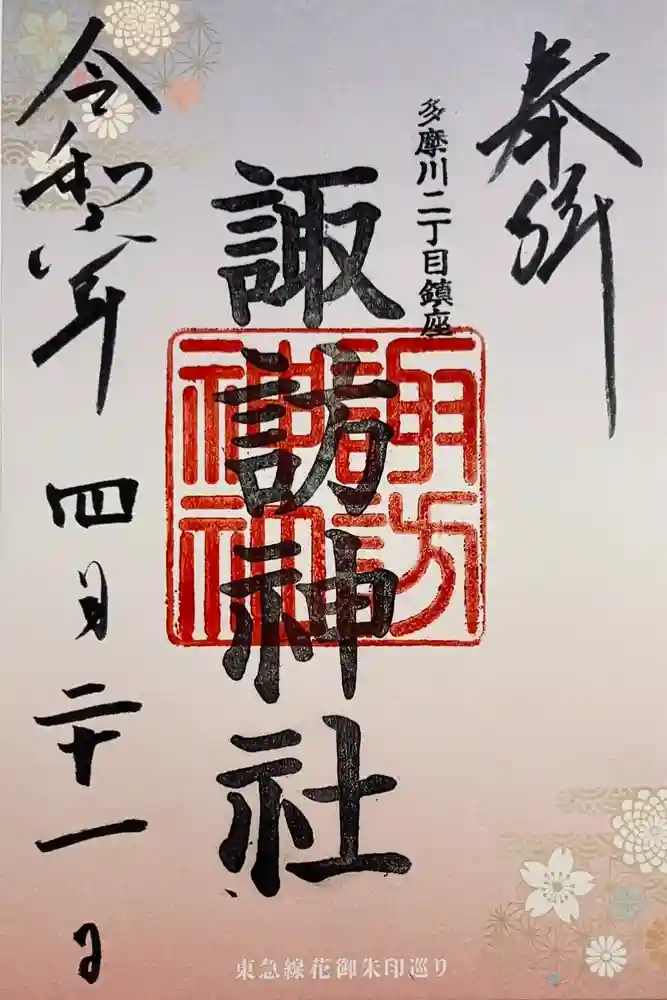 奉拝
多摩川二丁目鎮座
諏訪神社
諏訪神社
令和六年四月二十一日
東急線花御朱印巡り